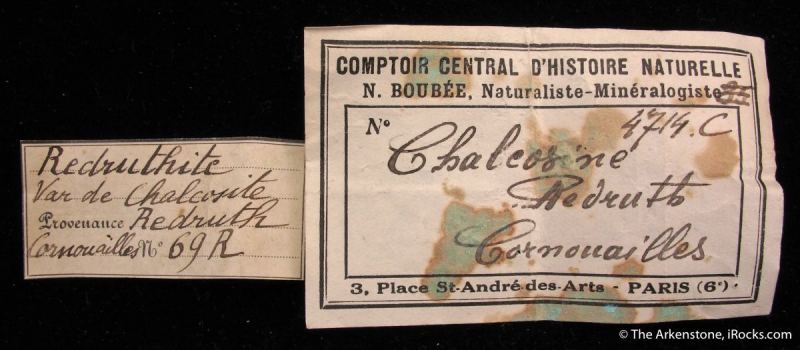 Redruthite
Var de Chalcosite
Provenance Redruth
Cornouailles No 69R
COMPTOIR CENTRAL D'HISTOIRE NATURELLE
N. BOUBÉE, Naturaliste-Minéralogiste
No 4714.C
Chalcosine
Redruth
Cornouailles
3, Place St-André-des-Arts - PARIS (6e)
© The Arkenstone, iRocks.com